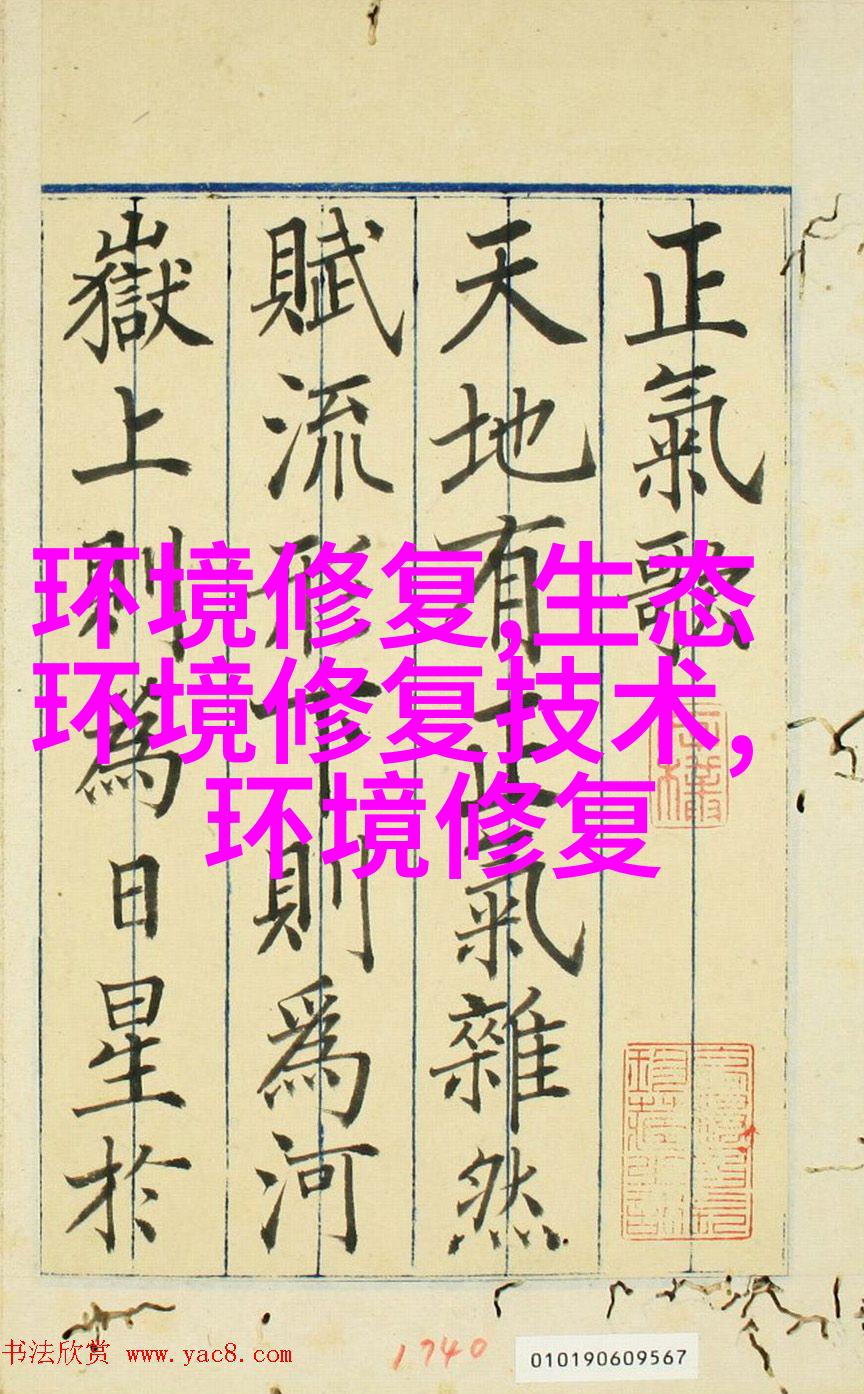 正氣歌
天地有正氣雜然
賦流形下則爲河
嶽上則爲日星於
环境修复,生态
环境修复技术,
环境修复
书法欣赏 www.yac8.com
1740
010190609567